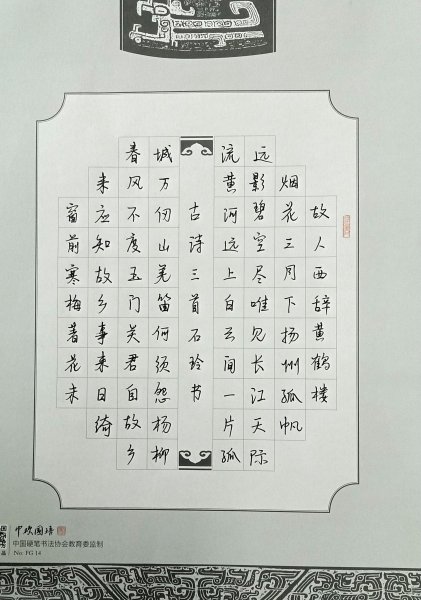 故人西辞黄鹤楼
烟花三月下扬州孤帆
远影碧空尽唯见长江天际
流黄河远上白云间一片孤
城万仞山羌笛何须怨杨柳
春风不度玉门关君自故乡
来应知故乡事来日绮
窗前寒梅着花未
古诗三首石玲书
中硬国培
中国硬笔书法协会教育委监制
No: FG 14